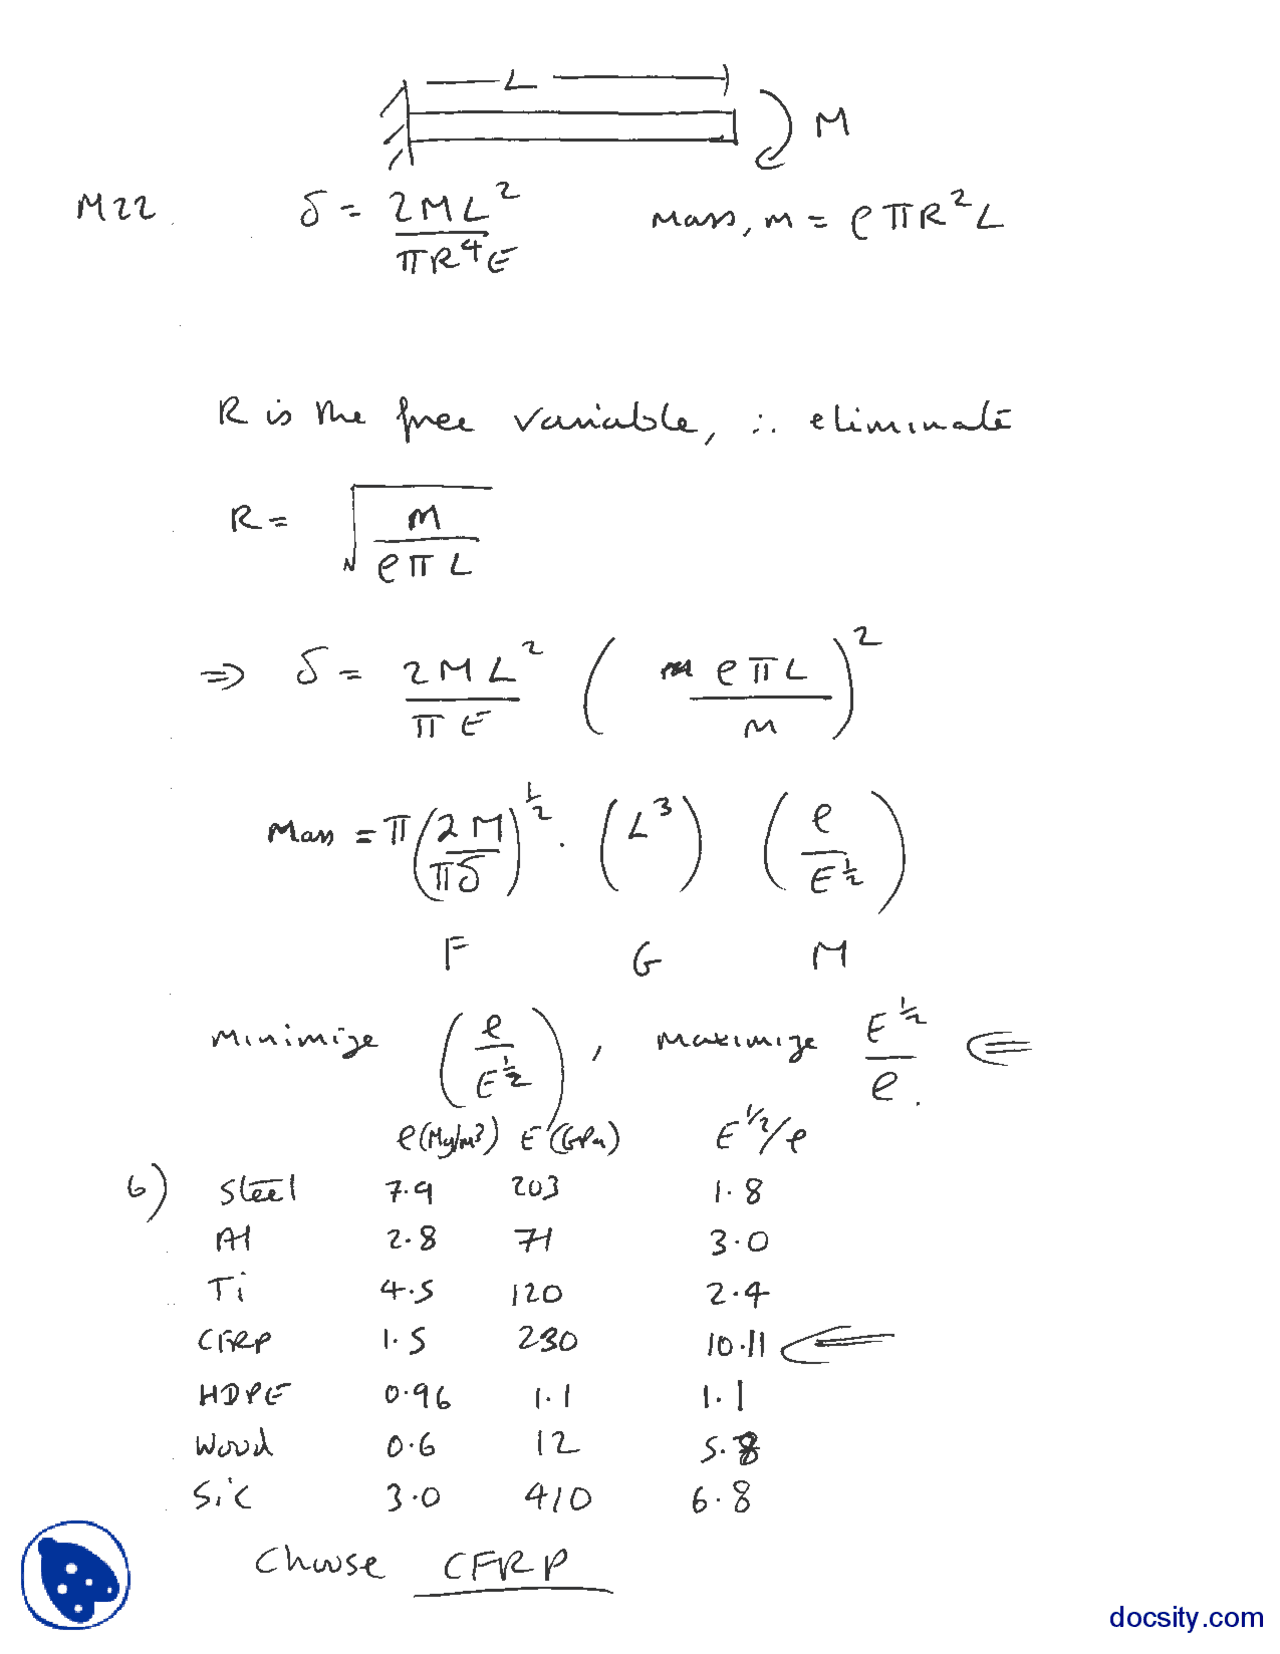 L
M
M22. δ = 2ML² / πR⁴E   Mass, m = ρπR²L
R is the free variable, ∴ eliminate
R = √(m / ρπL)
⇒ δ = 2ML² / πE (ρπL / m)²
Mass = π(2M / πδ)^½ · (L³) (ρ / E^½)
F G M
Minimize (ρ / E^½), maximize E^½ / ρ. ⇐
ρ(Mg/m³) E (GPa) E^½/ρ
6) Steel 7.9 203 1.8
Al 2.8 71 3.0
Ti 4.5 120 2.4
CFRP 1.5 230 10.11 ⇐
HDPE 0.96 1.1 1.1
Wood 0.6 12 5.8
SiC 3.0 410 6.8
Choose CFRP
docsity.com